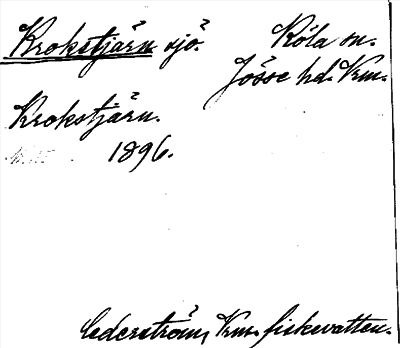 Krokstjärn sjö. Köla sn.
Jösse hd. Vrm.
Krokstjärn.
1896.
Cederström, Vrm. fiskevatten.